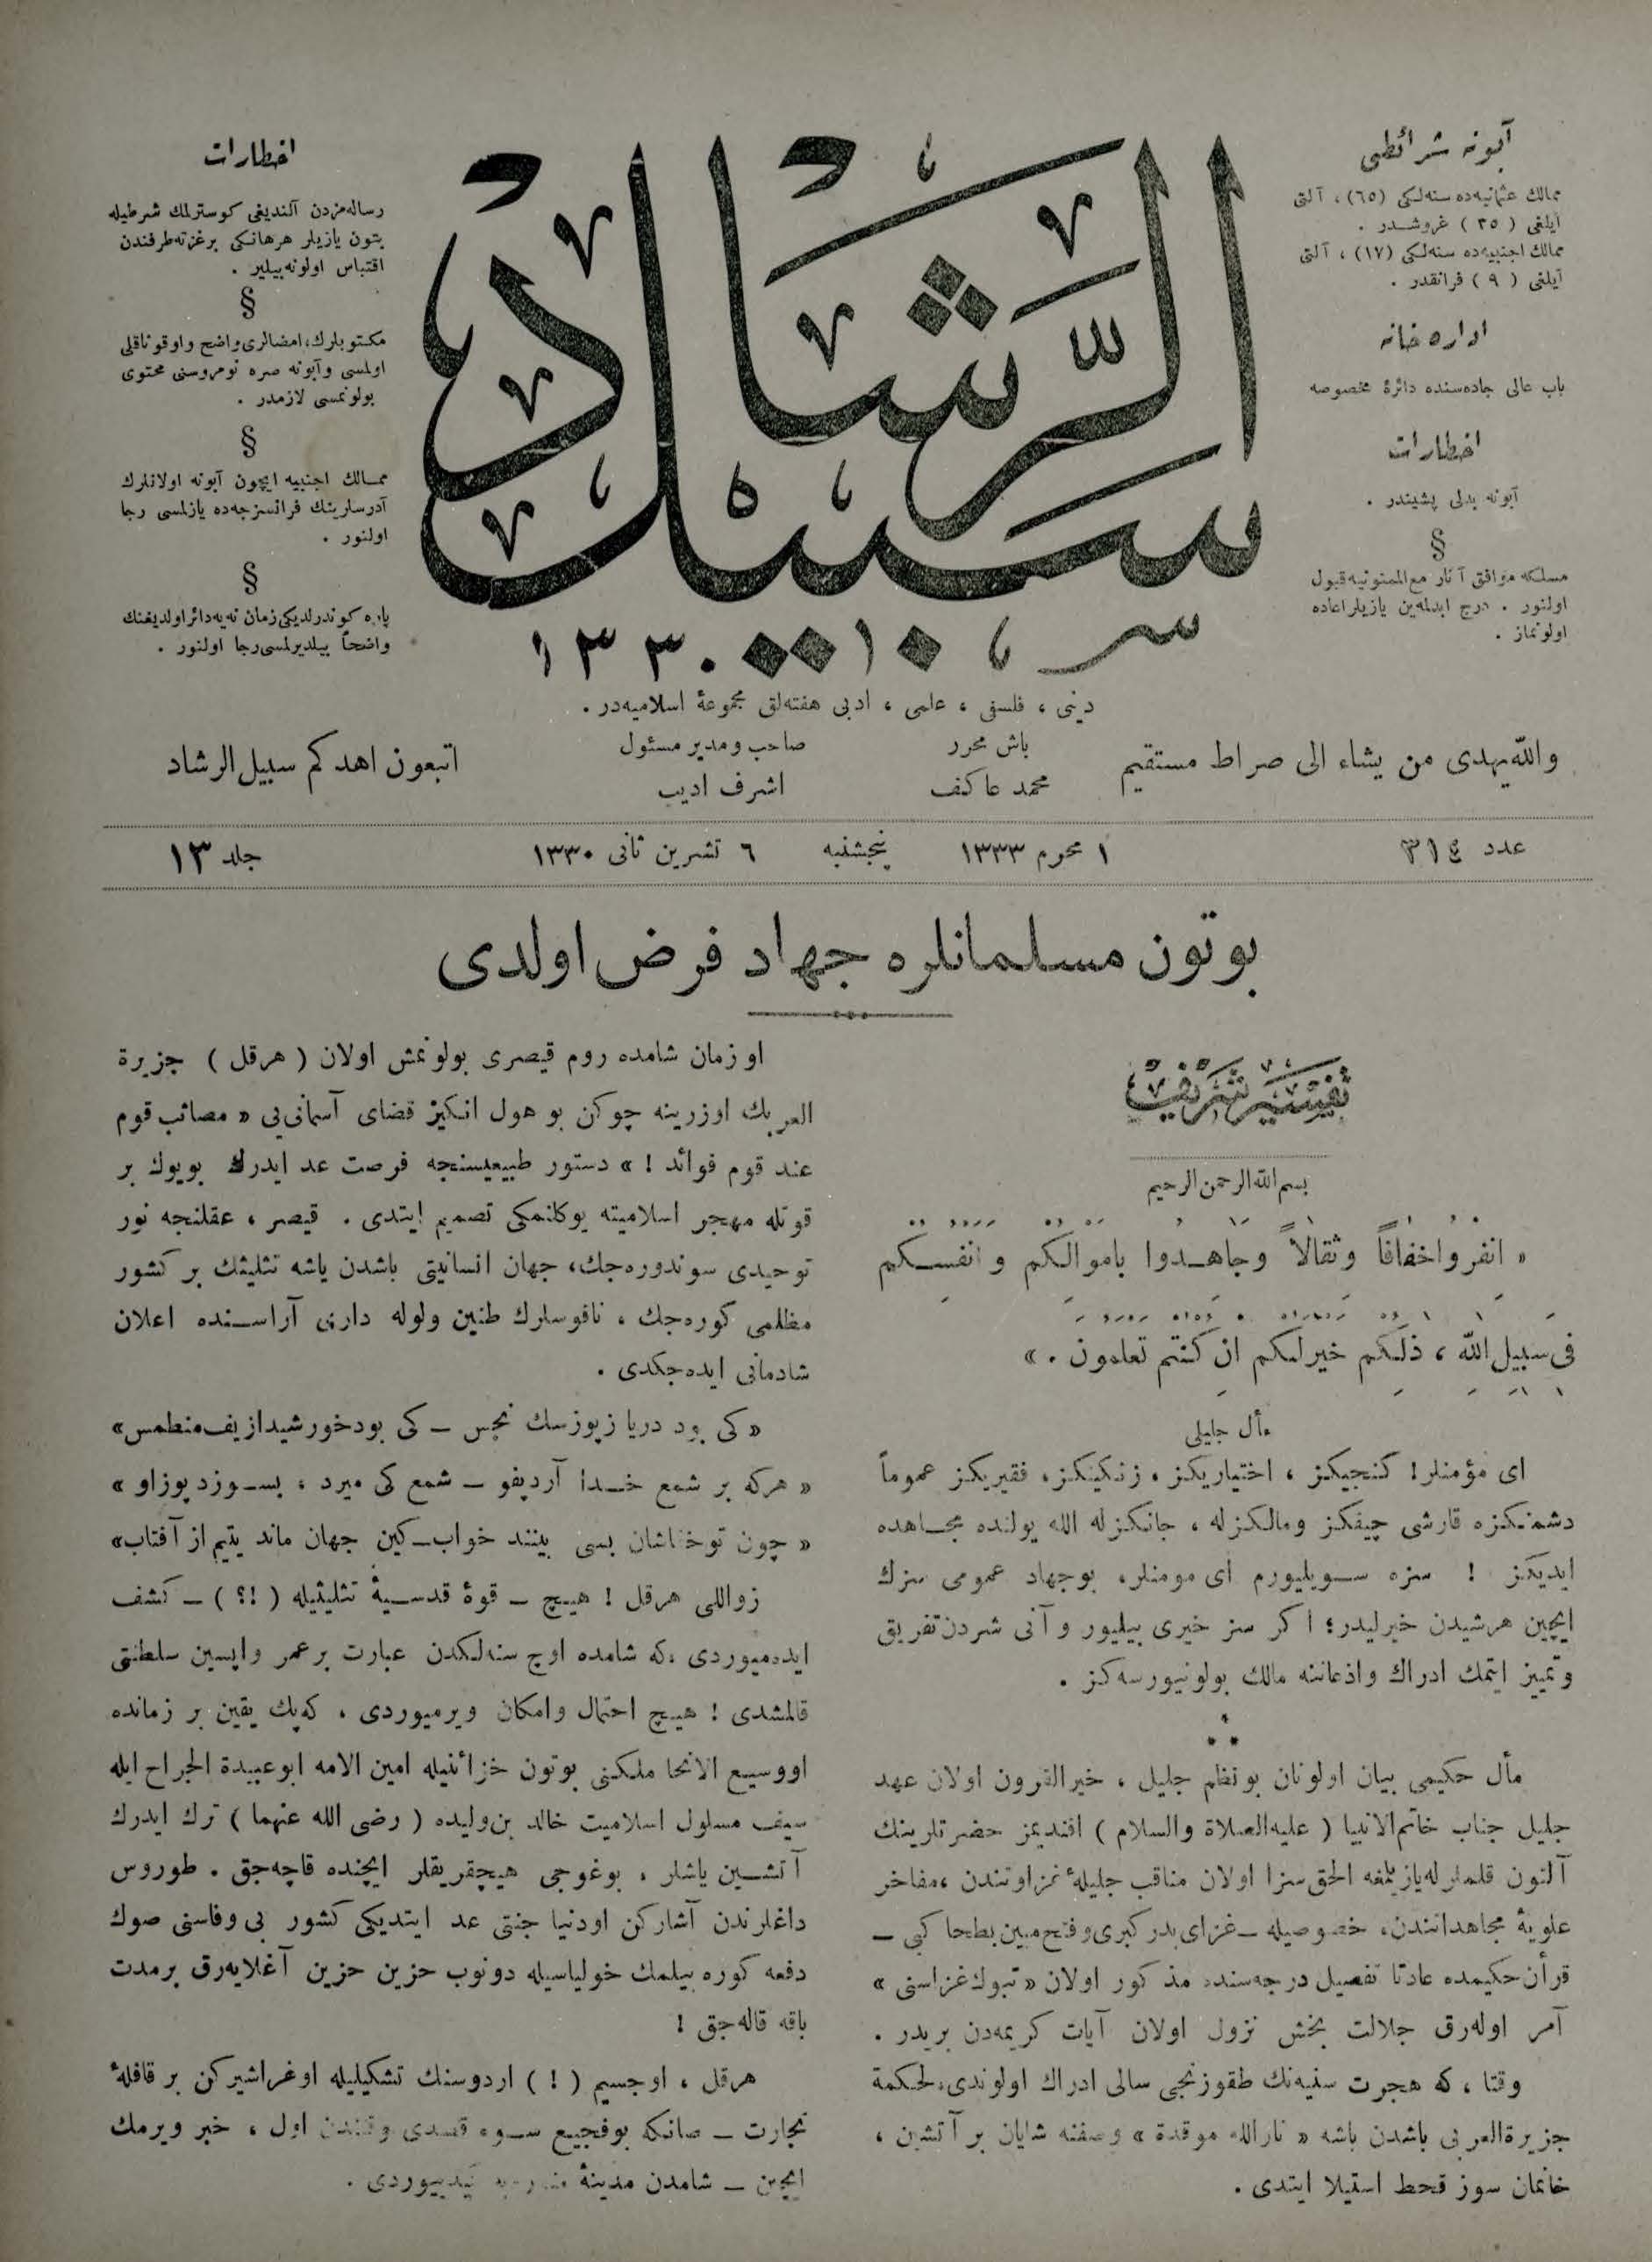 آبونه شرائطی
ممالك عثمانيه‌ده سنه‌لكی (٦٥) ، آلتی
آیلغی ( ٣٥ ) غروشدر .
ممالك اجنبیه‌ده سنه‌لكی (١٧) ، آلتی
آیلغی ( ٩ ) فرانقدر .
اداره خانه
باب عالی جاده‌سنده دائرۀ مخصوصه
اخطارات
آبونه بدلی پشیندر .
§
مسلكه موافق آثار مع‌الممنونیه قبول
اولنور . درج ایدلمه‌ین یازیلر اعاده
اولونماز .
اخطارات
رساله‌مزدن آلندیغی كوسترلمك شرطیله
بتون یازیلر هرهانكی برغزته طرفندن
اقتباس اولونه‌بیلیر .
§
مكتوبلرك، امضالری واضح واوقوناقلی
اولمسی وآبونه صره نومروسنی محتوی
بولونمسی لازمدر .
§
ممالك اجنبیه ایچون آبونه اولانلرك
آدرسلرینك فرانسزجه‌ده یازلمسی رجا
اولنور .
§
پاره كوندرلدیكی زمان نه‌یه دائر اولدیغنك
واضحاً بیلدیرلمسی رجا اولنور .
سبیل الرشاد
١٣٣٠
دینی ، فلسفی ، علمی ، ادبی هفته‌لق مجموعۀ اسلامیه‌در .
والله یهدی من یشاء الی صراط مستقیم
باش محرر
محمد عاكف
صاحب ومدیر مسئول
اشرف ادیب
اتبعون اهدكم سبیل الرشاد
عدد ٣١٤
١ محرم ١٣٣٣
پنجشنبه
٦ تشرین ثانی ١٣٣٠
جلد ١٣
بوتون مسلمانلره جهاد فرض اولدی
تفسیر شریف
بسم الله الرحمن الرحیم
« انفروا خفافاً وثقالاً وجاهدوا باموالكم وانفسكم
فی سبیل الله ، ذلكم خیر لكم ان كنتم تعلمون . »
مأل جلیلی
ای مؤمنلر! كنجیكز ، اختیاریكز ، زنكینكز ، فقیریكز عموماً
دشمنكزه قارشی چیقكز ومالكزله ، جانكزله الله یولنده مجاهده
ایدیكز ! سزه سویلیورم ای مومنلر، بوجهاد عمومی سزك
ایچین هرشیدن خیرلیدر؛ اكر سز خیری بیلیور وآنی شردن تفریق
وتمییز ایتمك ادراك واذعاننه مالك بولونیورسه‌كز .
مأل حكیمی بیان اولونان بونظم جلیل ، خیرالقرون اولان عهد
جلیل جناب خاتم‌الانبیا ( علیه‌الصلاة والسلام ) افندیمز حضرتلرینك
آلتون قلملرله یازیلمغه الحق سزا اولان مناقب جلیلۀ غزاوتندن ،مفاخر
علویۀ مجاهداتندن، خصوصیله ـ غزای بدر كبری وفتح مبین بطحا كبی ـ
قرأن حكیمده عادتا تفصیل درجه‌سنده مذكور اولان « تبوك غزاسنی »
آمر اوله‌رق جلالت بخش نزول اولان آیات كریمه‌دن بریدر .
وقتا ، كه هجرت سنیه‌نك طقوزنجی سالی ادراك اولوندی، لحكمة
جزیرةالعربی باشدن باشه « نارالله موقدة » وصفنه شایان بر آتشین ،
خانمان سوز قحط استیلا ایتدی .
او زمان شامده روم قیصری بولونمش اولان ( هرقل ) جزیرة
العربك اوزرینه چوكن بو هول انكیز قضای آسمانی‌یی « مصائب قوم
عند قوم فوائد ! » دستور طبیعیسنجه فرصت عد ایدرك بویوك بر
قوتله مهجر اسلامیته یوكلنمكی تصمیم ایتدی . قیصر ، عقلنجه نور
توحیدی سوندوره‌جك، جهان انسانیتی باشدن باشه تثلیثك بر كشور
مظلمی كوره‌جك ، ناقوسلرك طنین ولوله داری آراسنده اعلان
شادمانی ایده‌جكدی .
« كی بود دریا ز پوز سك نجس ـ كی بود خورشید از پف منطمس»
« هركه بر شمع خدا آرد پفو ـ شمع كی میرد ، بسوزد پوز او »
« چون تو خفاشان بسی بینند خواب ـ كین جهان ماند یتیم از آفتاب»
زواللی هرقل ! هیچ ـ قوۀ قدسیۀ تثلیثیله ( !؟ ) ـ كشف
ایده‌میوردی ،كه شامده اوج سنه‌لكدن عبارت برعمر واپسین سلطنتی
قالمشدی ! هیچ احتمال وامكان ویرمیوردی ، كه پك یقین بر زمانده
اووسیع الانحا ملكنی بوتون خزائنیله امین الامه ابوعبیدة الجراح ایله
سیف مسلول اسلامیت خالد بن ولیده ( رضی الله عنهما ) ترك ایدرك
آتشین یاشلر ، بوغوجی هیچقریقلر ایچنده قاچه‌جق . طوروس
داغلرندن آشاركن اودنیا جنتی عد ایتدیكی كشور بی وفاسنی صوك
دفعه كوره بیلمك خولیاسیله دونوب حزین حزین آغلایه‌رق برمدت
باقه قاله‌جق !
هرقل ، اوجسیم ( ! ) اردوسنك تشكیلیله اوغراشیركن بر قافلۀ
تجارت ـ صانكه بوفجیع سوء قصدی وقتندن اول ، خبر ویرمك
ایچین ـ شامدن مدینۀ منوره‌یه كیدییوردی .